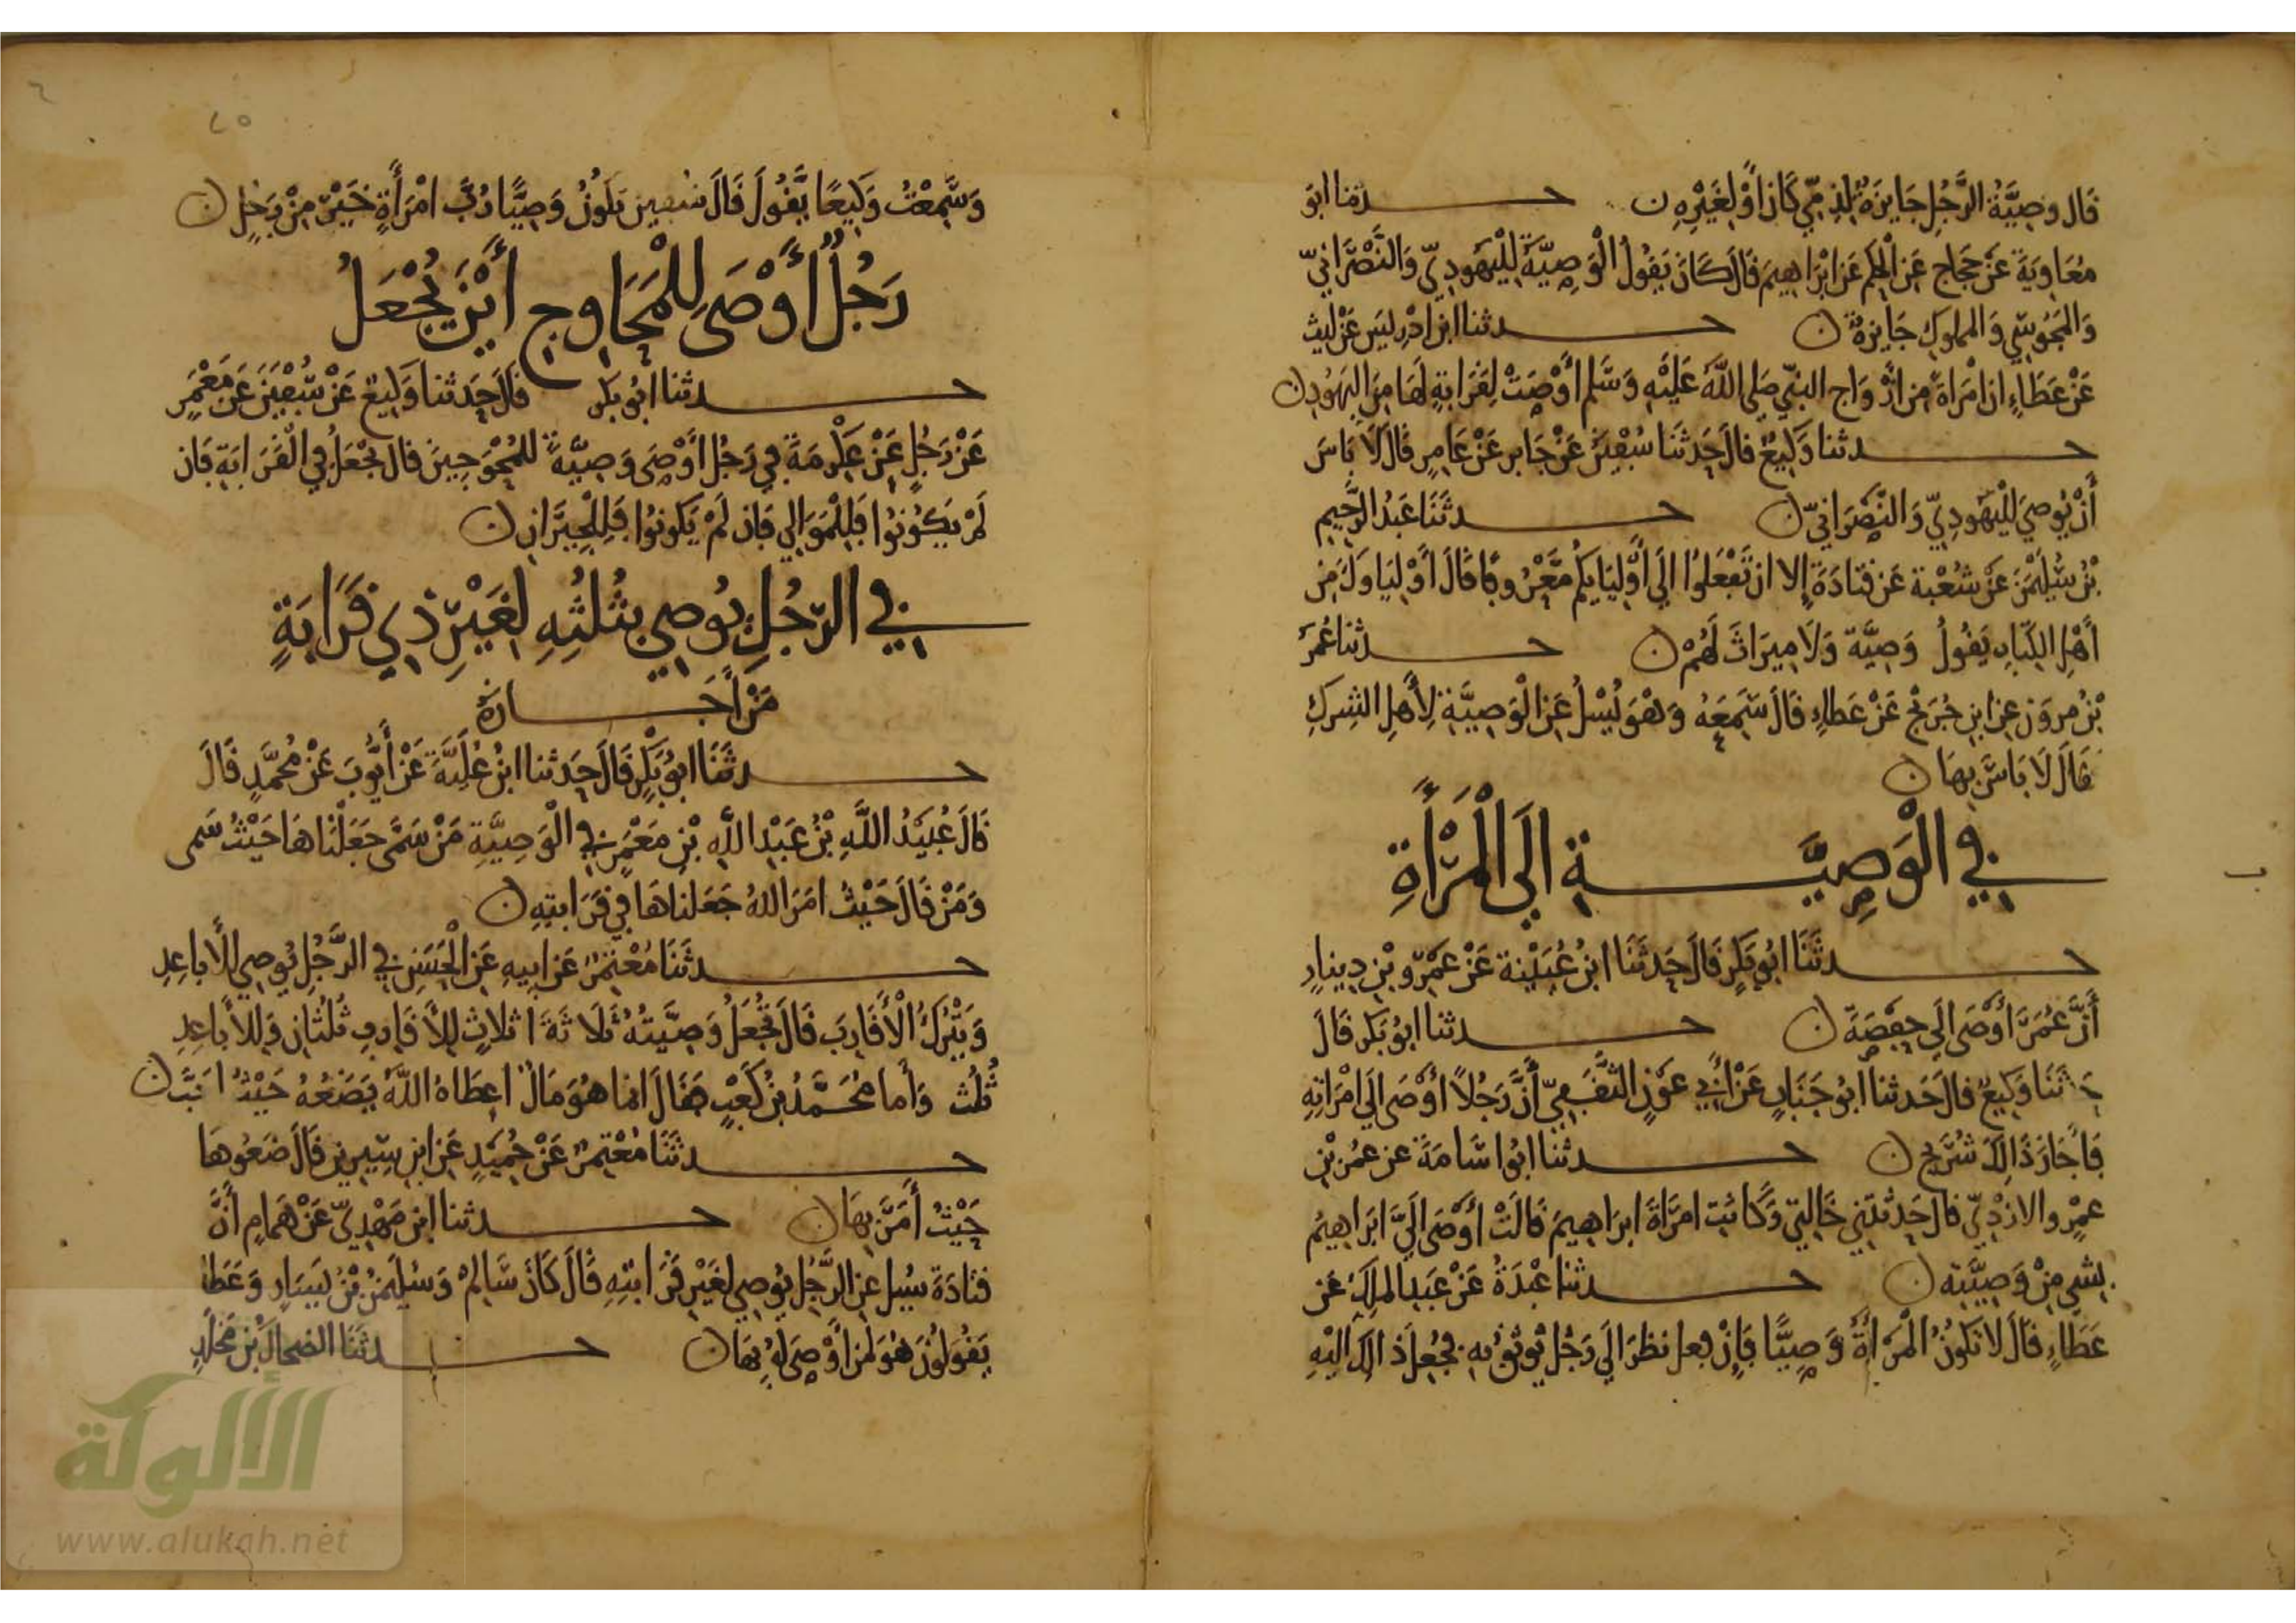 قَال وصِيَّةُ الرَّجُلِ جَايِزَةٌ لِذِمِّيٍّ كَانَ أوْ لِغَيْرِهِ ن حدثنا ابو
مُعَاوِيَةَ عَنْ حَجَّاجٍ عَنِ الْحَكَمِ عَنِ ابْرَاهِيمَ قَالَ كَانَ يَقُولُ الْوَصِيَّةُ لِلْيَهُودِيِّ وَالنَّصْرَانِيِّ
وَالمَجُوسِيِّ وَالمملوكِ جَايِزَةٌ ن حدثنا ابنُ ادْرِيسَ عَنْ لَيْثٍ
عَنْ عَطَاءٍ ان امْرَاةً مِن ازْوَاجِ النبيِّ صَلى اللَّهُ عَلَيْهِ وَسَّلم أوْصَتْ لِقَرَابَةٍ لَهَا مِنَ اليَهُودِ ن
حدثنا وَكِيعٌ قالَ حَدثَنَا سُفْيَنُ عَنْ جَابر عَنْ عَامِرٍ قَالَ لَا بَاسَ
أَنْ يُوصِيَ لِلْيَهُودِيِّ وَالنَّصْرَانِيِّ ن حدثَنَا عَبْدُ الرَّحِيمِ
بْنُ سُلَيْمَنَ عَنْ شُعْبة عَن قتادَةَ إلا ان تَفْعَلوُا الَى أوْلِيَايكُم مَّعْرُوفًا قَالَ أوْلِيَاوكَ مِن
أَهْلِ الكِتَابِ يَقُولُ وَصِيَّة وَلَا مِيرَاثَ لَهُمْ ن حدثنا عُمَرُ
بْنُ هرون عن ابن جُرَيْجٍ عَنْ عَطاءٍ قَالَ سَمِعَهُ وَهْوَ يُسْلُ عَنِ الْوَصِيَّةِ لِأَهلِ الشِركِ
قَالَ لَا بَاسَ بِهَا ن
في الْوَصِيَّةِ الَى الْمَرْأَةِ
حدثَنَا ابُو بَكرٍ قَالَ حَدثَنَا ابنُ عُيَيْنة عَنْ عَمْرو بْنِ دِينارٍ
أَنَّ عُمَرَ أوْصَى الَى حَفْصَةَ ن حدثنا ابُو بَكر قَالَ
حَدثَنَا وَكِيعٌ قالَ حَدثنا ابُو جَنَابٍ عَنْ ابِي عَوْنٍ الثَّقَفِيِّ أَنَّ رَجُلاً اوْصَى الَى امْرَاتِهِ
فَأَجَازَ ذَالِكَ شُرَيْحٌ ن حدثنا ابُوا سَّامَةَ عن عمُر بْنِ
عمْرو الازْدِيِّ قال حَدثَتْنِي خَالَتِي وَكَانَت امرَاةَ ابرَاهِيمَ قَالَتْ أوْصَى الَيَّ ابرَاهِيمُ
بِشي مِنْ وَصِيَّتِهِ ن حدثنا عبْدَةُ عَنْ عَبدِ الملِكِ عَن
عَطَاءٍ قَالَ لَا تَكُونُ الْمَرْأَةُ وَصِيًّا فَإِنْ فعل نظرَ الَى رَجُل يُوثَقُ بِهِ فجُعِلَ ذالكَ الَيْهِ
٢٥
وَسَّمِعْتُ وَكِيعًا يَقُولُ قَالَ سُفين تَكُونُ وَصِيًّا رُبَّ امْرَأَةٍ خَيْرٌ مِنْ رَجُلٍ ن
رَجُلٌ أَوْصَى لِلْمَحَاوِجِ أَيْنَ يُجْعَلُ
حدثنا ابُو بَكر قالَ حَدثنا وَكِيعٌ عَنْ سُفْيَنَ عَنْ مَعْمَرٍ
عَنْ رَجُلٍ عَنْ عَكْرِمَةَ فِي رَجُل أوْصَى وَصِيَّةً للمُحْوَجِينَ قال تجْعَلُ فِي الْقَرَابَةِ فَان
لَمْ يَكُونُوا فَلِلْمَوَالِي فَان لَمْ يَكونوا فَلِلْجِيرَانِ ن
في الرّجُلِ يُوصِي بثُلثِهِ لِغَيْرِ ذِي قَرَابَةٍ
مَنْ أجَازهُ
حدثَنَا ابوُ بَكْرٍ قَالَ حَدثنا ابنُ عُلَيَّةَ عَنْ أيُّوبَ عَنْ مُحمَّدٍ قَالَ
قالَ عُبَيْدُ اللَّهِ بْنُ عَبْدِ اللَّهِ بْنِ مَعْمَرٍ في الْوَصِيَّةِ مَنْ سَمَّى جَعَلْنَاهَا حَيْثُ سَمى
وَمَنْ قَالَ حَيْثُ امَرَ اللهُ جَعَلنَاهَا فِي قَرَابتِهِ ن
حدثَنَا مُعْتَمِرٌ عَن ابِيهِ عَنِ الْحَسَنِ فِي الرَّجُلِ يُوصِي لِلأَباعِدِ
وَيَتْرُكُ الأَقَارِبَ قَالَ تُجْعَلُ وَصِيَّتهُ ثَلَاثَةَ اثلاثٍ لِلأَقَاربِ ثُلُثَانِ وَلِلأَبَاعِدِ
ثُلُث وَأما مُحَمَّدُ بنُ كَعْبٍ فقَالَ انما هُوَ مَالٌ اعطَاهُ اللَّهُ يَضَعُهُ حَيْثُ احَبَّ ن
حدثَنَا مُعْتِمرٌ عَنْ حُمَيْدٍ عَنِ ابنِ سِيرِينَ قَالَ ضَعُوهَا
حَيْثُ أَمَرَ بِهَا ن حدثنا ابن مَهْدِيٍّ عَنْ هَمامٍ أَنَّ
قتادَةَ سُيل عن الرَّجُلِ يُوصِي لغَيْرِ قَرَابتِهِ قَالَ كَانَ سَّالِمٌ وَسُلَيْمَنُ بْنُ يَسَارٍ وَعَطا
يَقُولُونَ هُوَ لمَنْ أوْصَى لَهُ بِهَا ن حدثنَا الضحاكُ بْن مَخْلَدٍ
الألوكة
www.alukah.net